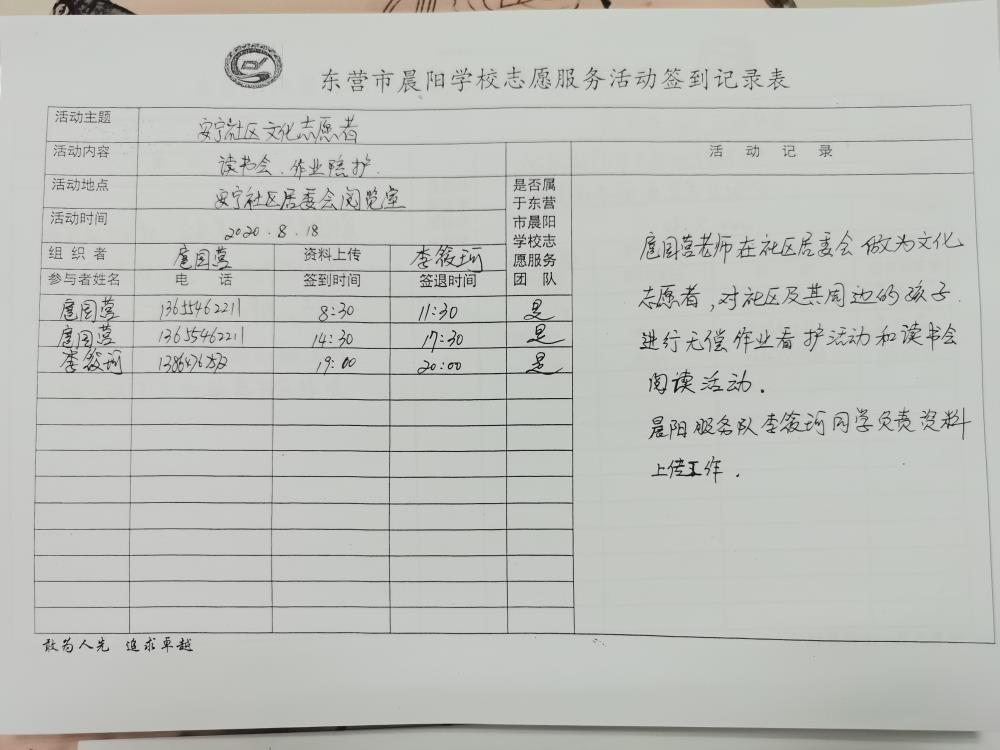 东营市晨阳学校志愿服务活动签到记录表
活动主题 安宁社区文化志愿者
活动内容 读书会、作业陪护.
活动地点 安宁社区居委会阅览室
活动时间 2020.8.18
是否属于东营市晨阳学校志愿服务团队
活动记录
组织者 扈国营 资料上传 李筱珂
参与者姓名 电话 签到时间 签退时间
扈国营 13655462211 8:30 11:30 是
扈国营 13655462211 14:30 17:30 是
李筱珂 19:00 20:00 是
扈国营老师在社区居委会做为文化
志愿者,对社区及其周边的孩子
进行无偿作业看护活动和读书会
阅读活动.
晨阳服务队李筱珂同学负责资料
上传工作.
敢为人先 追求卓越